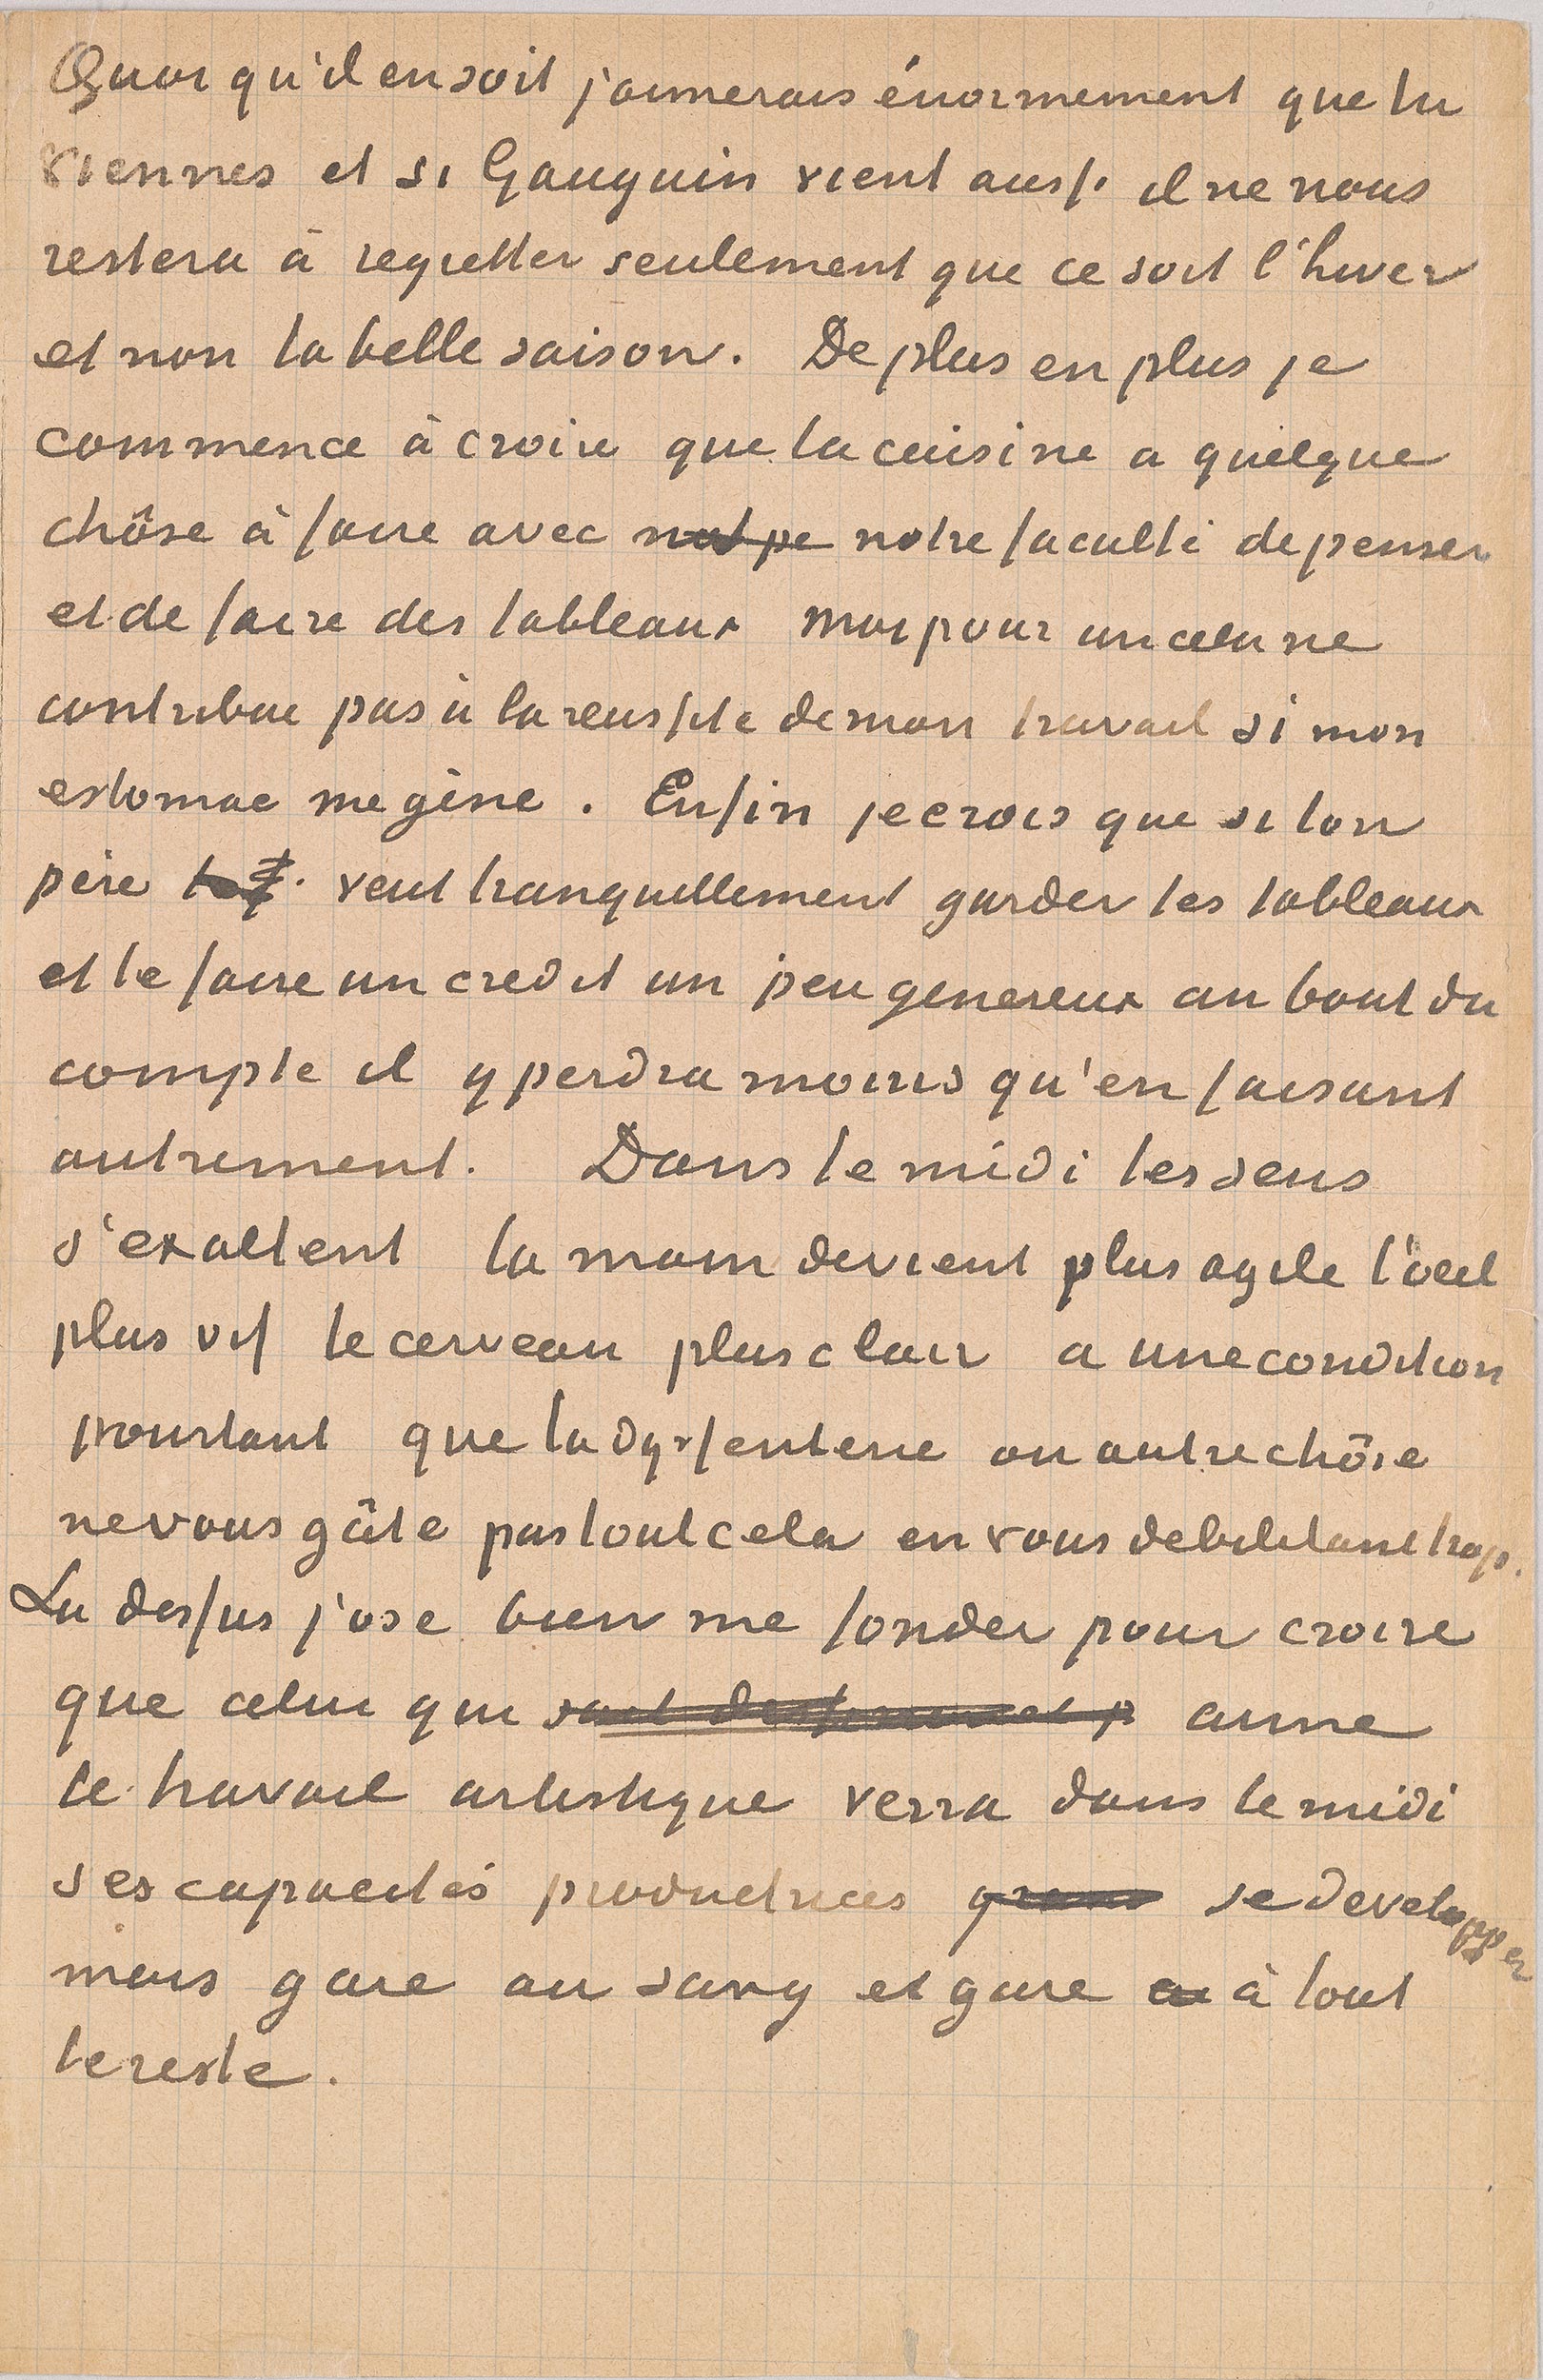 Quoi qu'il en soit j'aimerais énormement que tu
viennes et si Gauguin vient aussi il ne nous
restera à regretter seulement que ce soit l'hiver
et non la belle saison. De plus en plus je
commence à croire que la cuisine a quelque
chôse à faire avec not pe notre faculté de penser
et de faire des tableaux moi pour un cela ne
contribue pas à la reussite de mon travail si mon
estomac me gène. Enfin je crois que si ton
père veut tranquillement garder tes tableaux
et te faire un credit un peu genereux au bout du
compte il y perdra moins qu'en faisant
autrement. Dans le midi les sens
s'exaltent la main devient plus agile l'oeil
plus vif le cerveau plus clair a une condition
pourtant que la dyssenterie ou autre chôse
ne vous gâte pas tout cela en vous debilitant trop.
La dessus j'ose bien me fonder pour croire
que celui qui aime
le travail artistique verra dans le midi
ses capacités productrices se developper
mais gare au sang et gare au à tout
le reste.